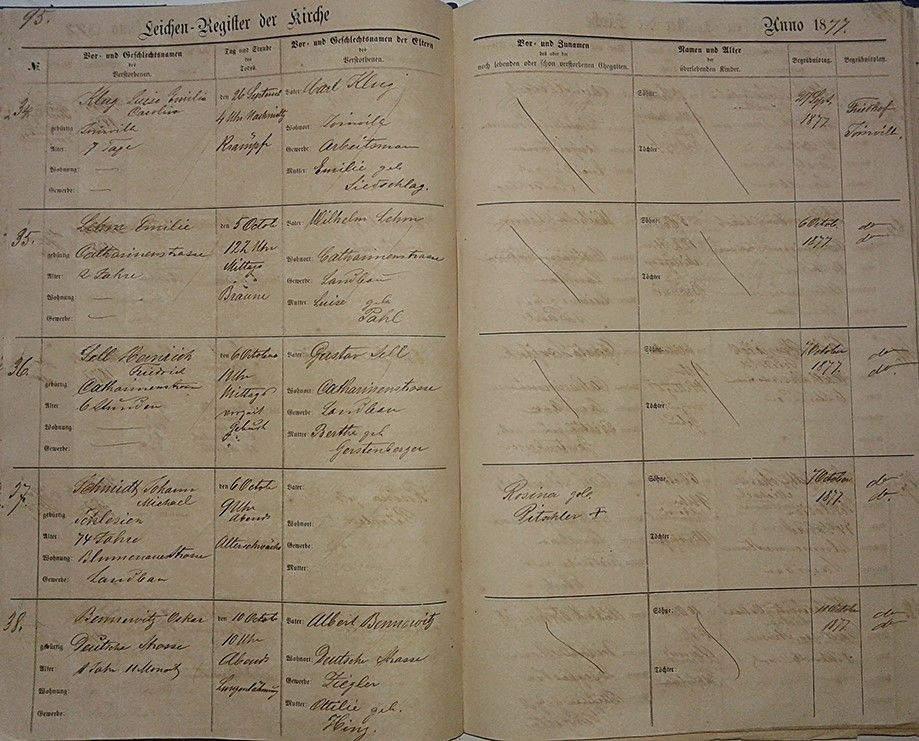 95.
Leichen-Register der Kirche
Anno 1877.
№
Vor- und Geschlechtsnamen
des
Verstorbenen.
Tag und Stunde
des
Todes.
Vor- und Geschlechtsnamen der Eltern
des
Verstorbenen.
Vor- und Zunamen
des oder der
noch lebenden oder schon verstorbenen Ehegatten.
Namen und Alter
der
überlebenden Kinder.
Begräbnißtag.
Begräbnißplatz.
34.
Klug Luise Emilie
Caroline
gebürtig Joinville
Alter: 7 Tage
Wohnung: —
Gewerbe: —
den 26 Septemb
4 Uhr Nachmittg
Krämpf
Vater: Carl Klug
Wohnort: Joinville
Gewerbe: Arbeitsman
Mutter: Emilie geb
Siedschlag.
Söhne:
Töchter:
27 Sept.
1877
Friedhof
Joinville.
35.
Lehm Emilie
gebürtig Catharinenstrasse
Alter: 2 Jahre
Wohnung: —
Gewerbe: —
den 5 Octob
12½ Uhr
Mittags
Bräune
Vater: Wilhelm Lehm
Wohnort: Catharinenstrasse
Gewerbe: Landbau
Mutter: Luise geb
Pahl
Söhne:
Töchter:
6 Octob.
1877.
do
do
36.
Sell Heinrich
Friedrich
gebürtig Catharinenstrasse
Alter 6 Stunden
Wohnung: —
Gewerbe: —
den 6 Octobe
Uhr
Mittags
Geburt
Vater: Gustav Sell
Wohnort: Catharinenstrasse
Gewerbe: Landbau
Mutter: Bertha geb
Gerstenberger
Söhne:
Töchter:
7 October
1877.
do
do
37.
Schmidt Johann
Michael
gebürtig Schlesien
Alter: 74 Jahre
Wohnung: Blumenauerstrasse
Gewerbe: Landbau
den 6 Octob
9 Uhr
Abends
Altersschwäche
Vater:
Wohnort:
Gewerbe:
Mutter:
Rosina geb.
Pitschler +
Söhne:
Töchter:
7 October
1877.
do
do
38.
Bennewitz Oskar
gebürtig Deutsche Strasse
Alter 1 Jahr 11 Monat
Wohnung:
Gewerbe:
den 10 Octob
10 Uhr
Abends
Lungenlähmung
Vater: Albert Bennewitz
Wohnort: Deutsche Strasse
Gewerbe: Ziegler
Mutter: Ottilie geb.
Hinz.
Söhne:
Töchter:
11 Octobe
1877.
do
do